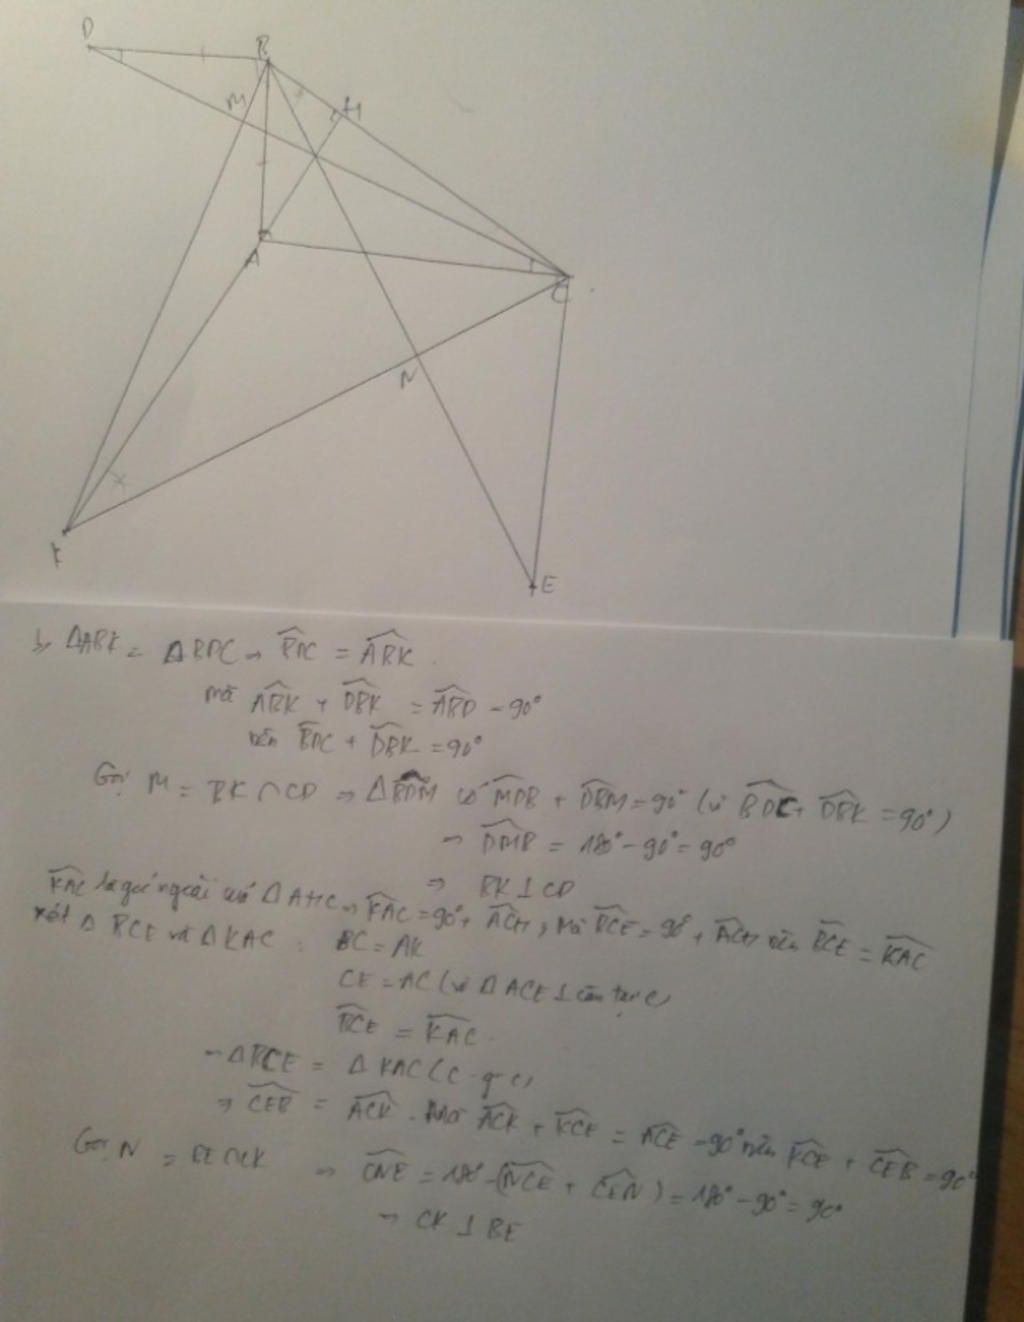 D
B
M
H
A
C
N
K
E
b, ΔABK = ΔBDC → \widehat{BDC} = \widehat{ABK}.
mà \widehat{ABK} + \widehat{DBK} = \widehat{ABD} = 90°
nên \widehat{BDC} + \widehat{DBK} = 90°
Gọi M = BK ∩ CD ⇒ ΔBDM có \widehat{MDB} + \widehat{DBM} = 90° (vì \widehat{BDC} + \widehat{DBK} = 90°)
⇒ \widehat{DMB} = 180° - 90° = 90°
⇒ BK ⊥ CD
\widehat{KAC} là góc ngoài ΔAHC ⇒ \widehat{KAC} = 90° + \widehat{ACH}, Mà \widehat{BCE} = 90° + \widehat{ACH} nên \widehat{BCE} = \widehat{KAC}
xét Δ BCE và Δ KAC : BC = AK
CE = AC (vì Δ ACE ⊥ cân tại C)
\widehat{BCE} = \widehat{KAC}.
→ ΔBCE = Δ KAC (c-g-c)
⇒ \widehat{CEB} = \widehat{ACK}. Mà \widehat{ACK} + \widehat{KCE} = \widehat{ACE} = 90° nên \widehat{KCE} + \widehat{CEB} = 90°
Gọi N = BE ∩ CK ⇒ \widehat{CNE} = 180° - (\widehat{NCE} + \widehat{CEN}) = 180° - 90° = 90°
⇒ CK ⊥ BE